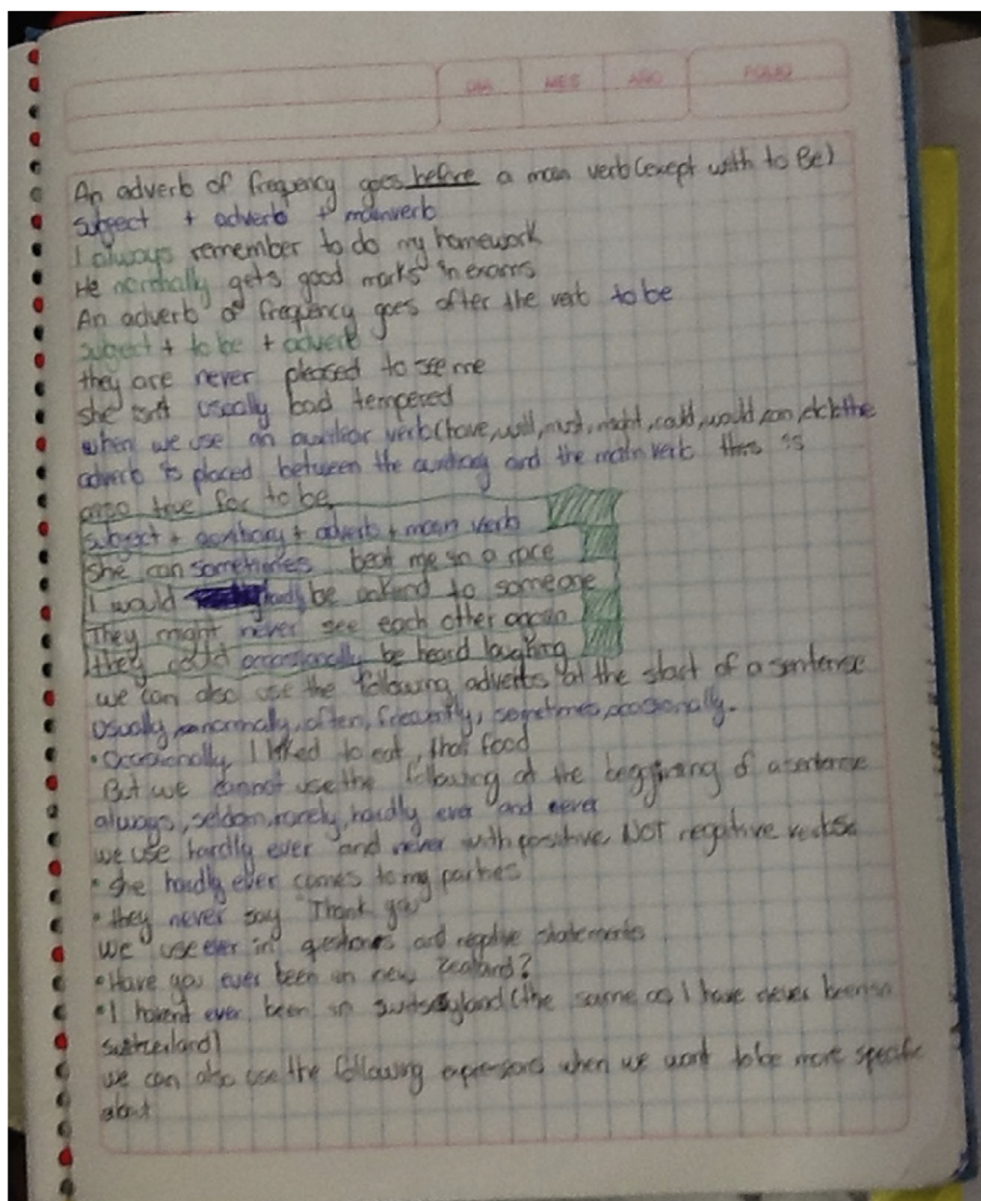 DIA MES AÑO FOLIO
An adverb of frequency goes before a main verb (except with to Be)
subject + adverb + mainverb
I always remember to do my homework
He normally gets good marks in exams
An adverb of frequency goes after the verb to be
subject + to be + adverb
they are never pleased to see me
she isn't usually bad tempered
when we use an auxiliar verb (have, will, must, might, could, would, can, etc) the
adverb is placed between the auxiliary and the main verb this is
also true for to be
subject + auxiliary + adverb + main verb
She can sometimes beat me in a race
I would hardly be unkind to someone
They might never see each other again
they could occassionally be heard laughing
we can also use the following adverbs at the start of a sentence
Usually, normally, often, frecuently, sometimes, occasionally.
• Occasionally, I liked to eat, that food
But we cannot use the following at the beggining of a sentence
always, seldom, rarely, hardly ever and never
we use hardly ever and never with positive, NOT negative verbs
• she hardly ever comes to my parties
• they never say "Thank you"
we use ever in questions and negative statements
• Have you ever been in new Zealand?
• I havent ever been in (the same as I have never been in
Switzerland)
we can also use the following expressions when we want to be more specific
about